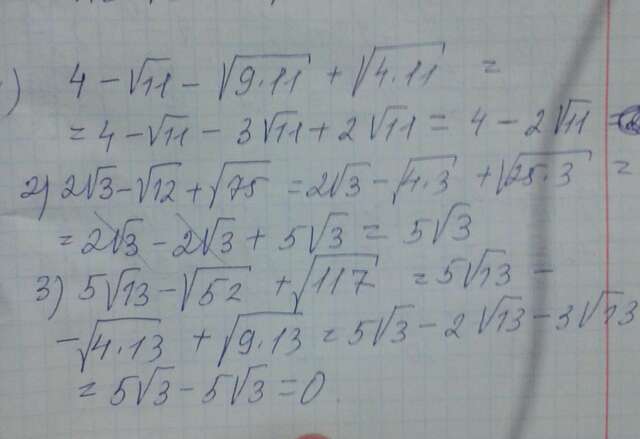 ) 4 - √11 - √9·11 + √4·11 =
= 4 - √11 - 3√11 + 2√11 = 4 - 2√11 =
2) 2√3 - √12 + √75 = 2√3 - √4·3 + √25·3 =
= 2√3 - 2√3 + 5√3 = 5√3
3) 5√13 - √52 + √117 = 5√13 -
- √4·13 + √9·13 = 5√3 - 2√13 - 3√13
= 5√3 - 5√3 = 0